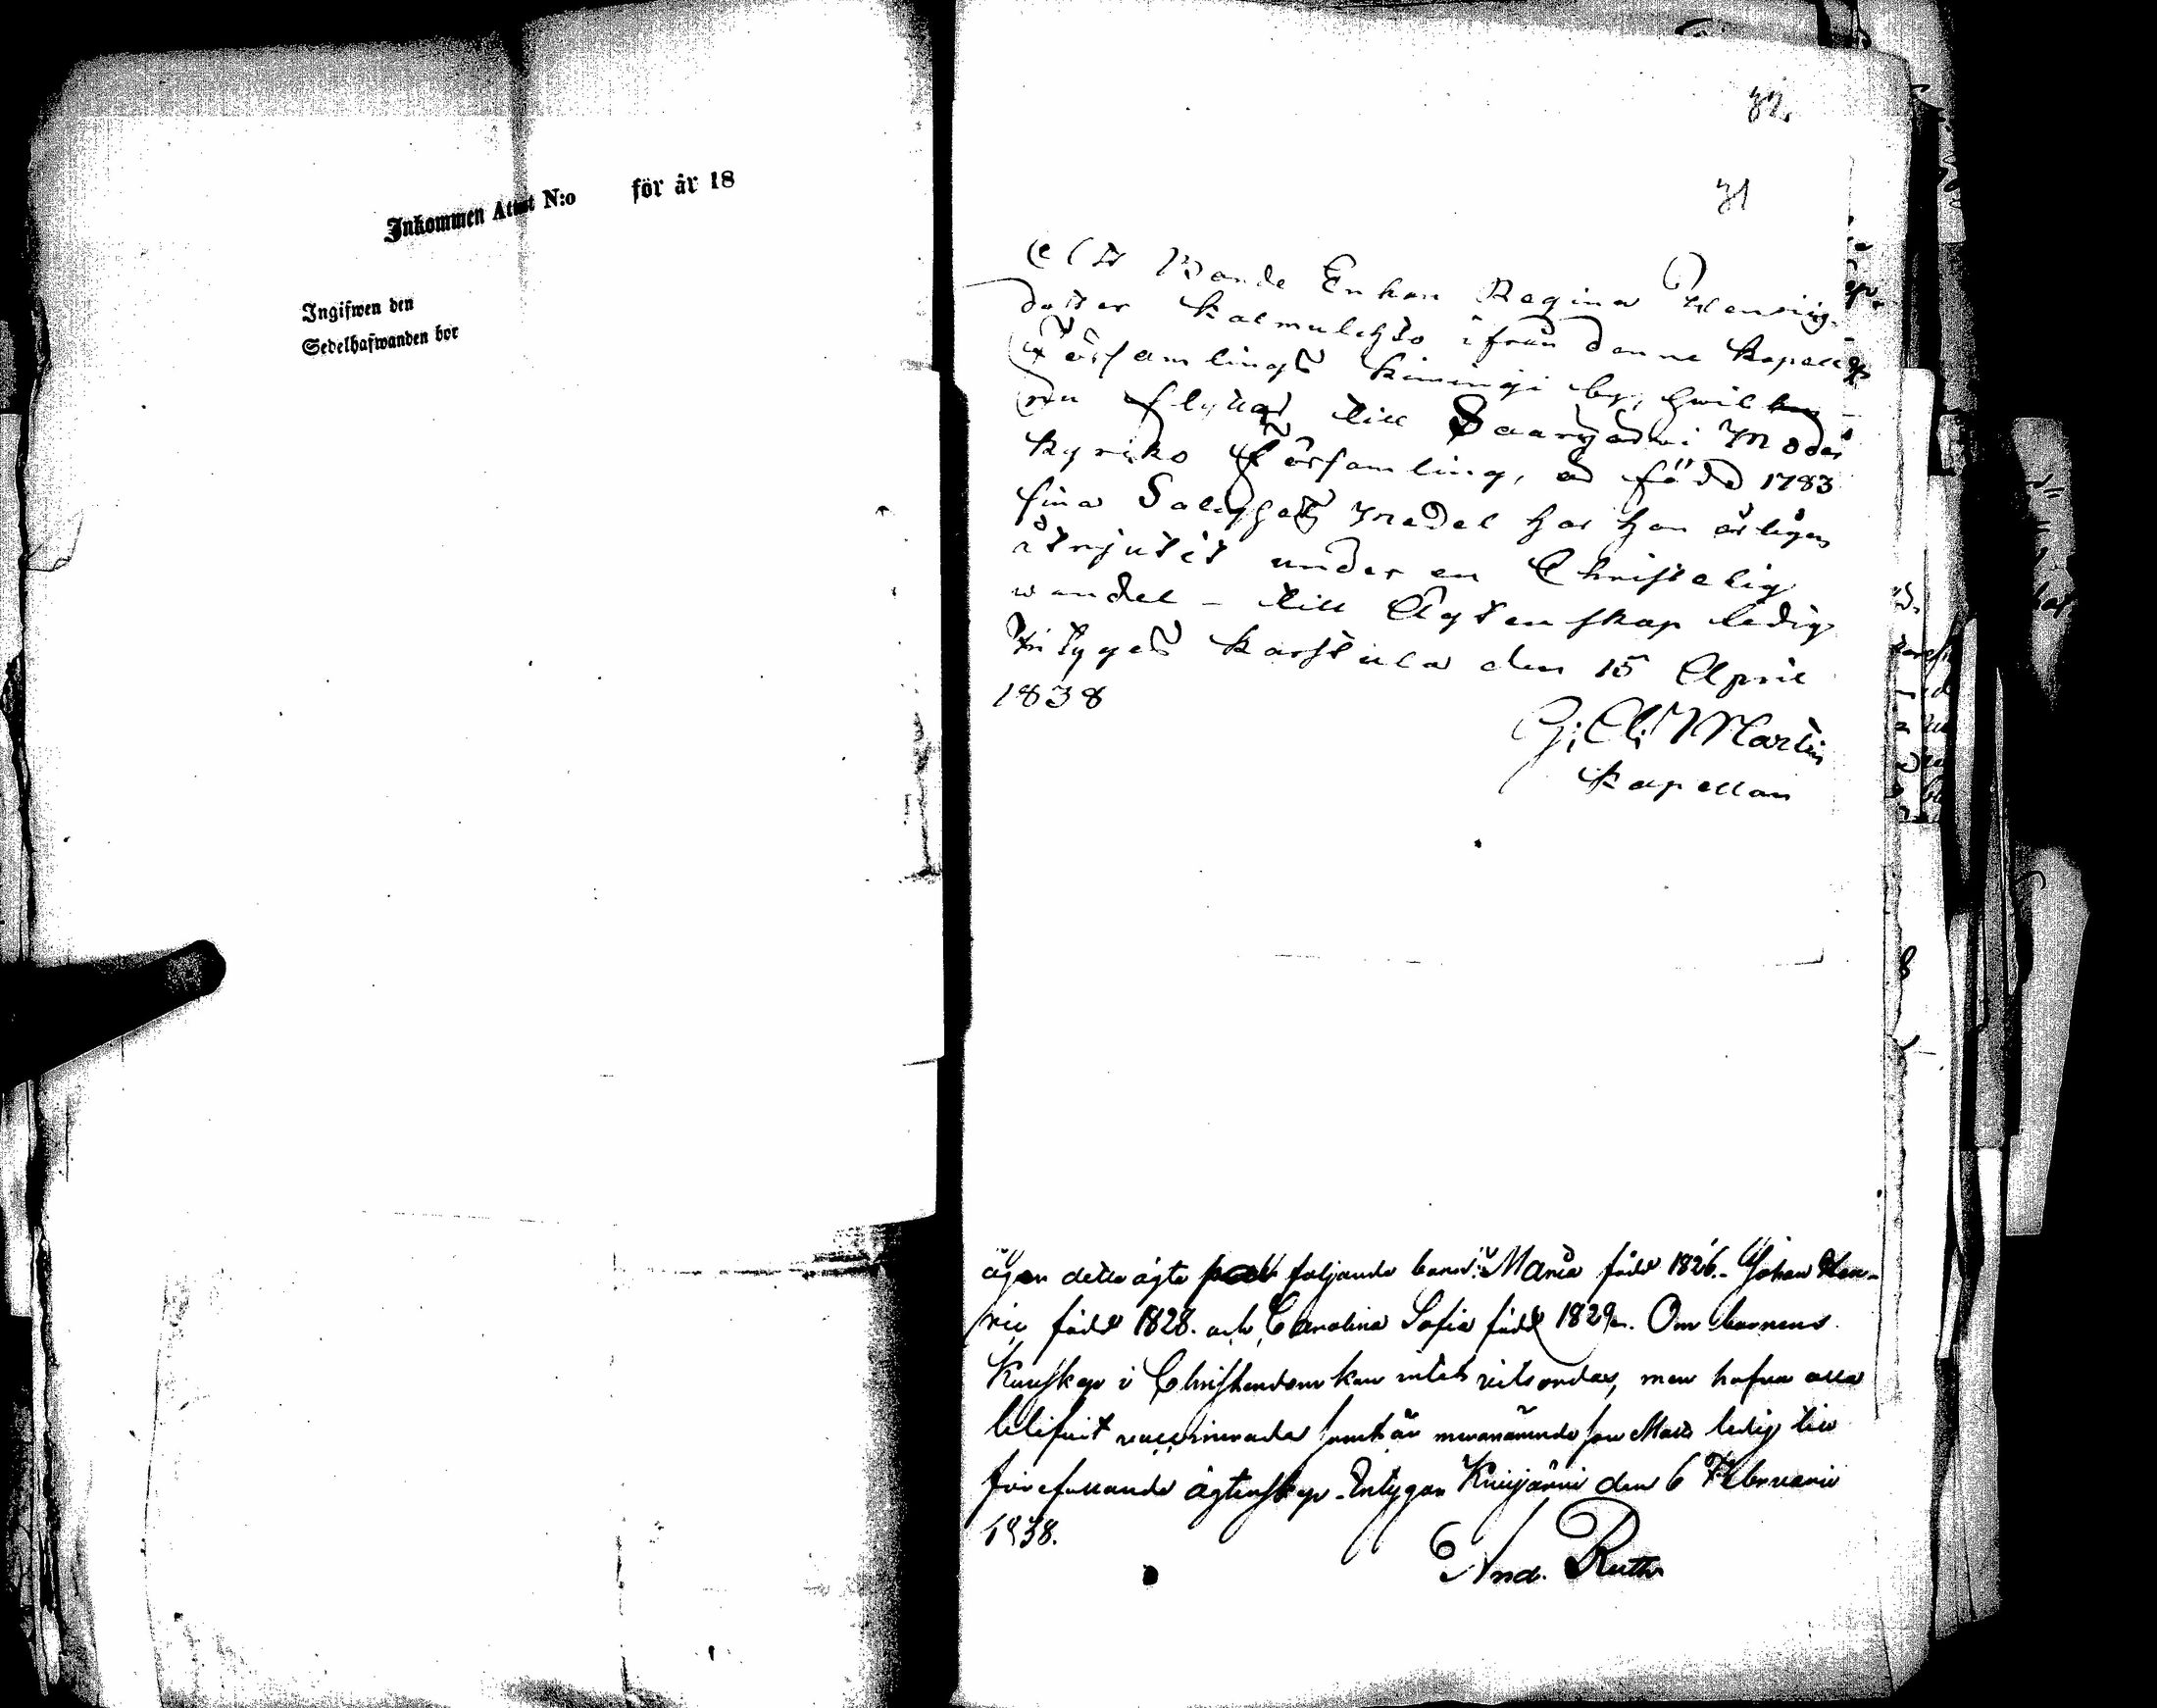 Inkommen Attest N:o för år 18
Ingifwen den
Sedelhafwanden bor
31
Att Bonde Enkan Regina Henrics
dotter Kalmulehto ifrån denne Kapell
Församlings Kiminginki by, hwilken
nu flyttar till Saarijärvi Moder
kyrko Församling, är född 1783
sina Salighets Medel har hon årligen
åtnjutit under en Christelig
wandel – till Ägtenskap ledig
intygas Karstula den 15 April
1838
Martin
Kapellan
äger detta ägta följande barn: Maria född 1826. Johan Hen-
ric född 1828. och Carolina Sofia född 1829. Om barnens
Kunskap i Christendom kan intet vitsordas, men hafva alla
blifvit vaccinerade samt är Mats ledig till
förefallande ägtenskap. Intygar Kivijärvi den 6 Februarii
1838.
And. Ruth